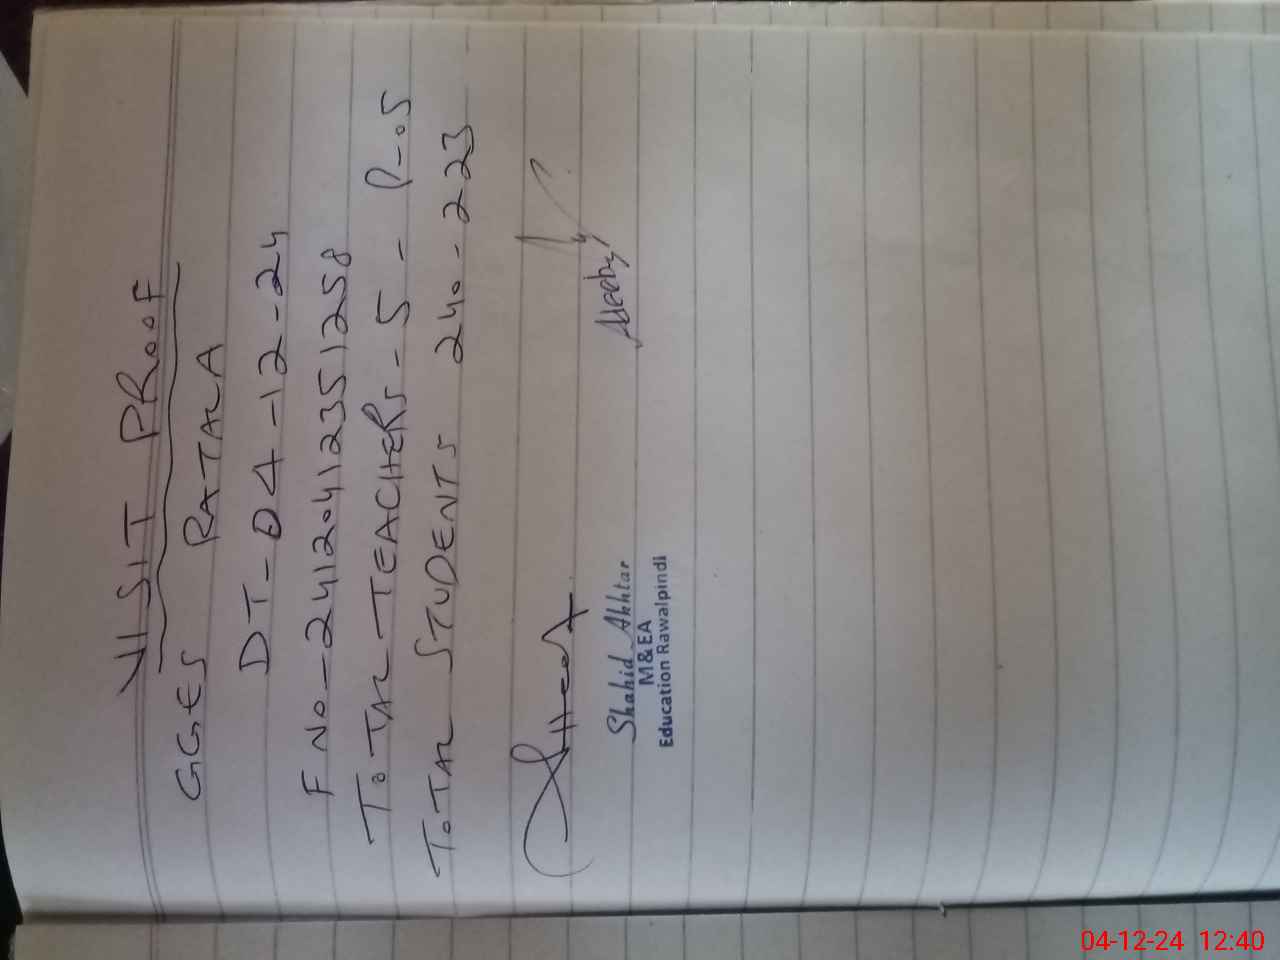 VISIT PROOF
GGES RATALA
DT-04-12-24
F No-24120412351258
TOTAL-TEACHERS-5- P-05
TOTAL STUDENTS 240-223
Shahid Akhtar
M&EA
Education Rawalpindi
04-12-24 12:40